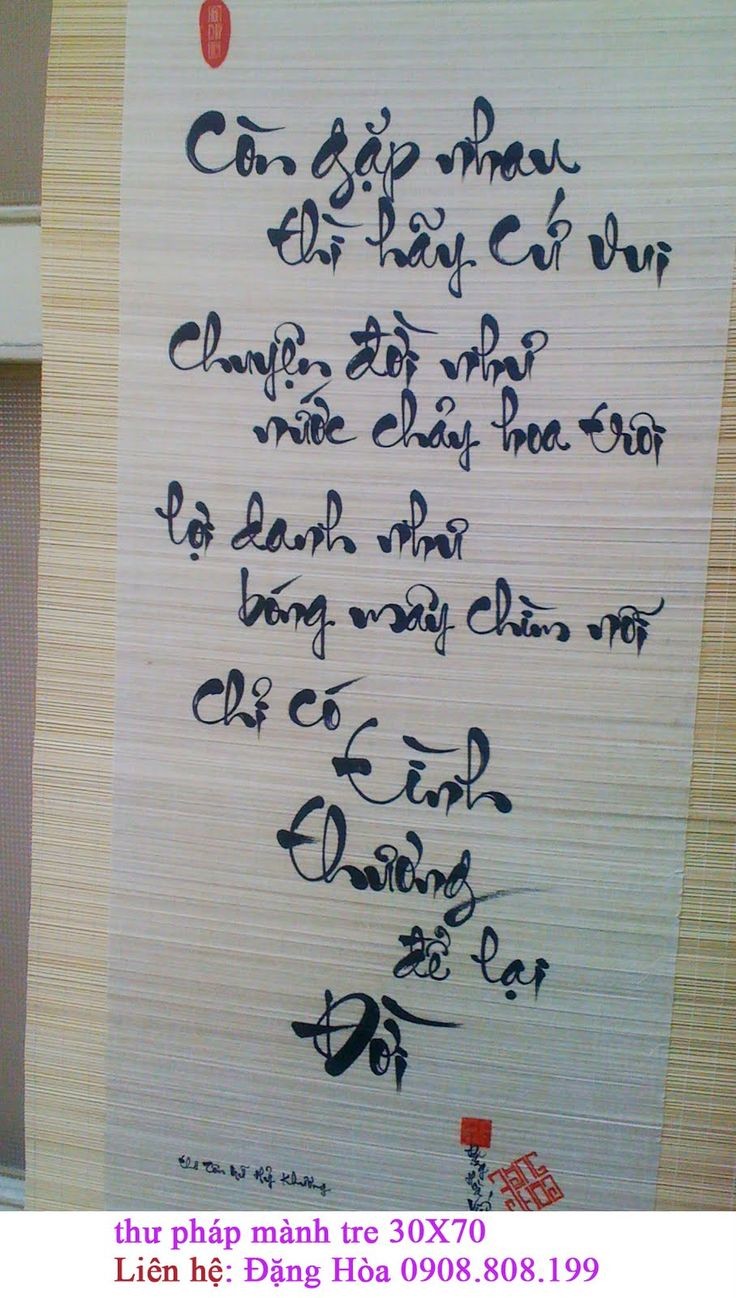 Còn gặp nhau
thì hãy cứ vui
chuyện đời như
nước chảy hoa trôi
lợi danh như
bóng mây chìm nổi
chỉ có
tình
thương
để lại
Đời
thơ Tôn Nữ Hỷ Khương
thư pháp mành tre 30X70
Liên hệ: Đặng Hòa 0908.808.199